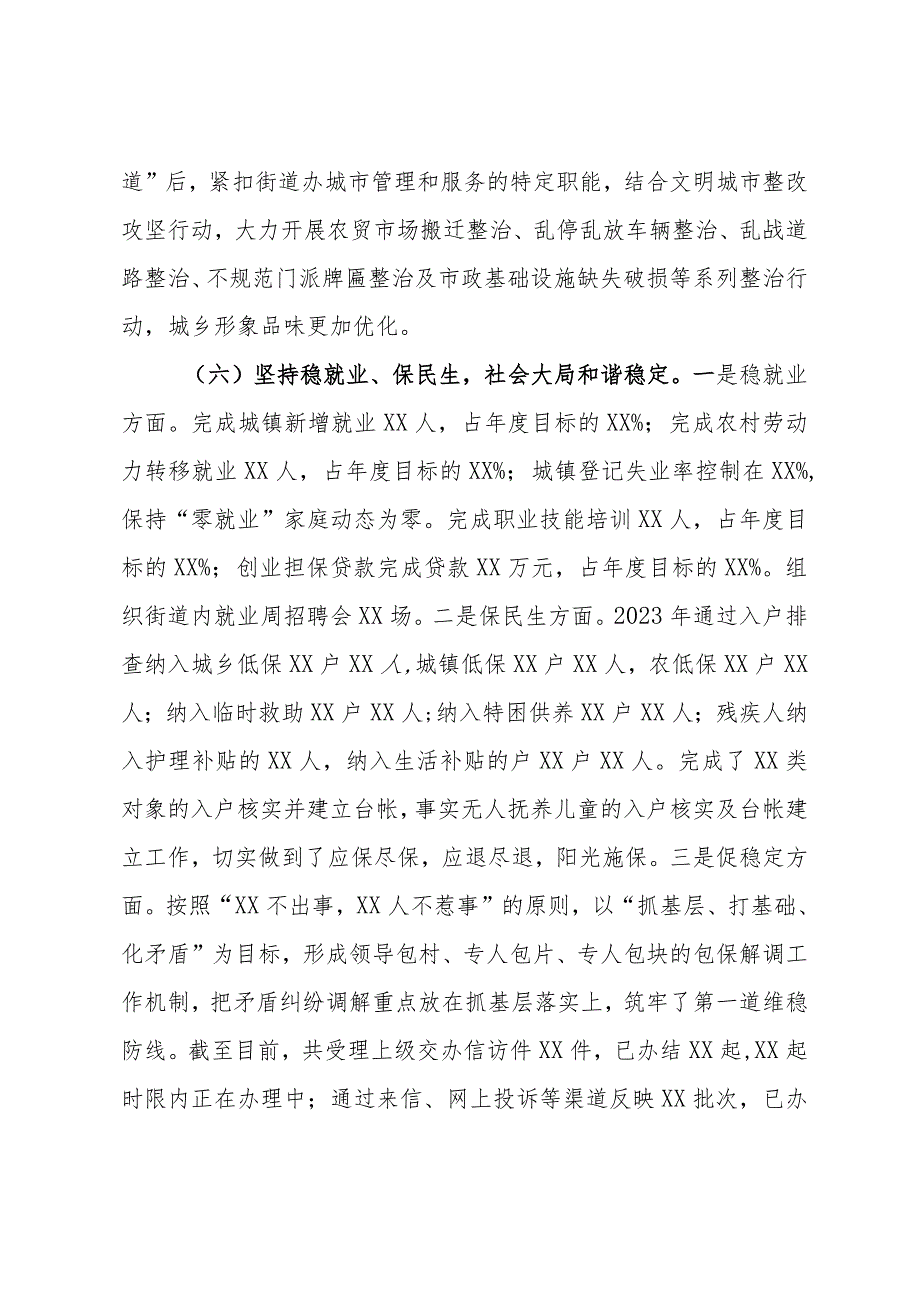 道”后，紧扣街道办城市管理和服务的特定职能，结合文明城市整改
攻坚行动，大力开展农贸市场搬迁整治、乱停乱放车辆整治、乱战道
路整治、不规范门派牌匾整治及市政基础设施缺失破损等系列整治行
动，城乡形象品味更加优化。
（六）坚持稳就业、保民生，社会大局和谐稳定。一是稳就业
方面。完成城镇新增就业 XX 人，占年度目标的 XX%；完成农村劳动
力转移就业 XX 人，占年度目标的 XX%；城镇登记失业率控制在 XX%,
保持“零就业”家庭动态为零。完成职业技能培训 XX 人，占年度目
标的 XX%；创业担保贷款完成贷款 XX 万元，占年度目标的 XX%。组
织街道内就业周招聘会 XX 场。二是保民生方面。2023 年通过入户排
查纳入城乡低保 XX 户 XX 人,城镇低保 XX 户 XX 人，农低保 XX 户 XX
人；纳入临时救助 XX 户 XX 人;纳入特困供养 XX 户 XX 人；残疾人纳
入护理补贴的 XX 人，纳入生活补贴的户 XX 户 XX 人。完成了 XX 类
对象的入户核实并建立台帐，事实无人抚养儿童的入户核实及台帐建
立工作，切实做到了应保尽保，应退尽退，阳光施保。三是促稳定方
面。按照“XX 不出事，XX 人不惹事”的原则，以“抓基层、打基础、
化矛盾”为目标，形成领导包村、专人包片、专人包块的包保解调工
作机制，把矛盾纠纷调解重点放在抓基层落实上，筑牢了第一道维稳
防线。截至目前，共受理上级交办信访件 XX 件，已办结 XX 起,XX 起
时限内正在办理中；通过来信、网上投诉等渠道反映 XX 批次，已办